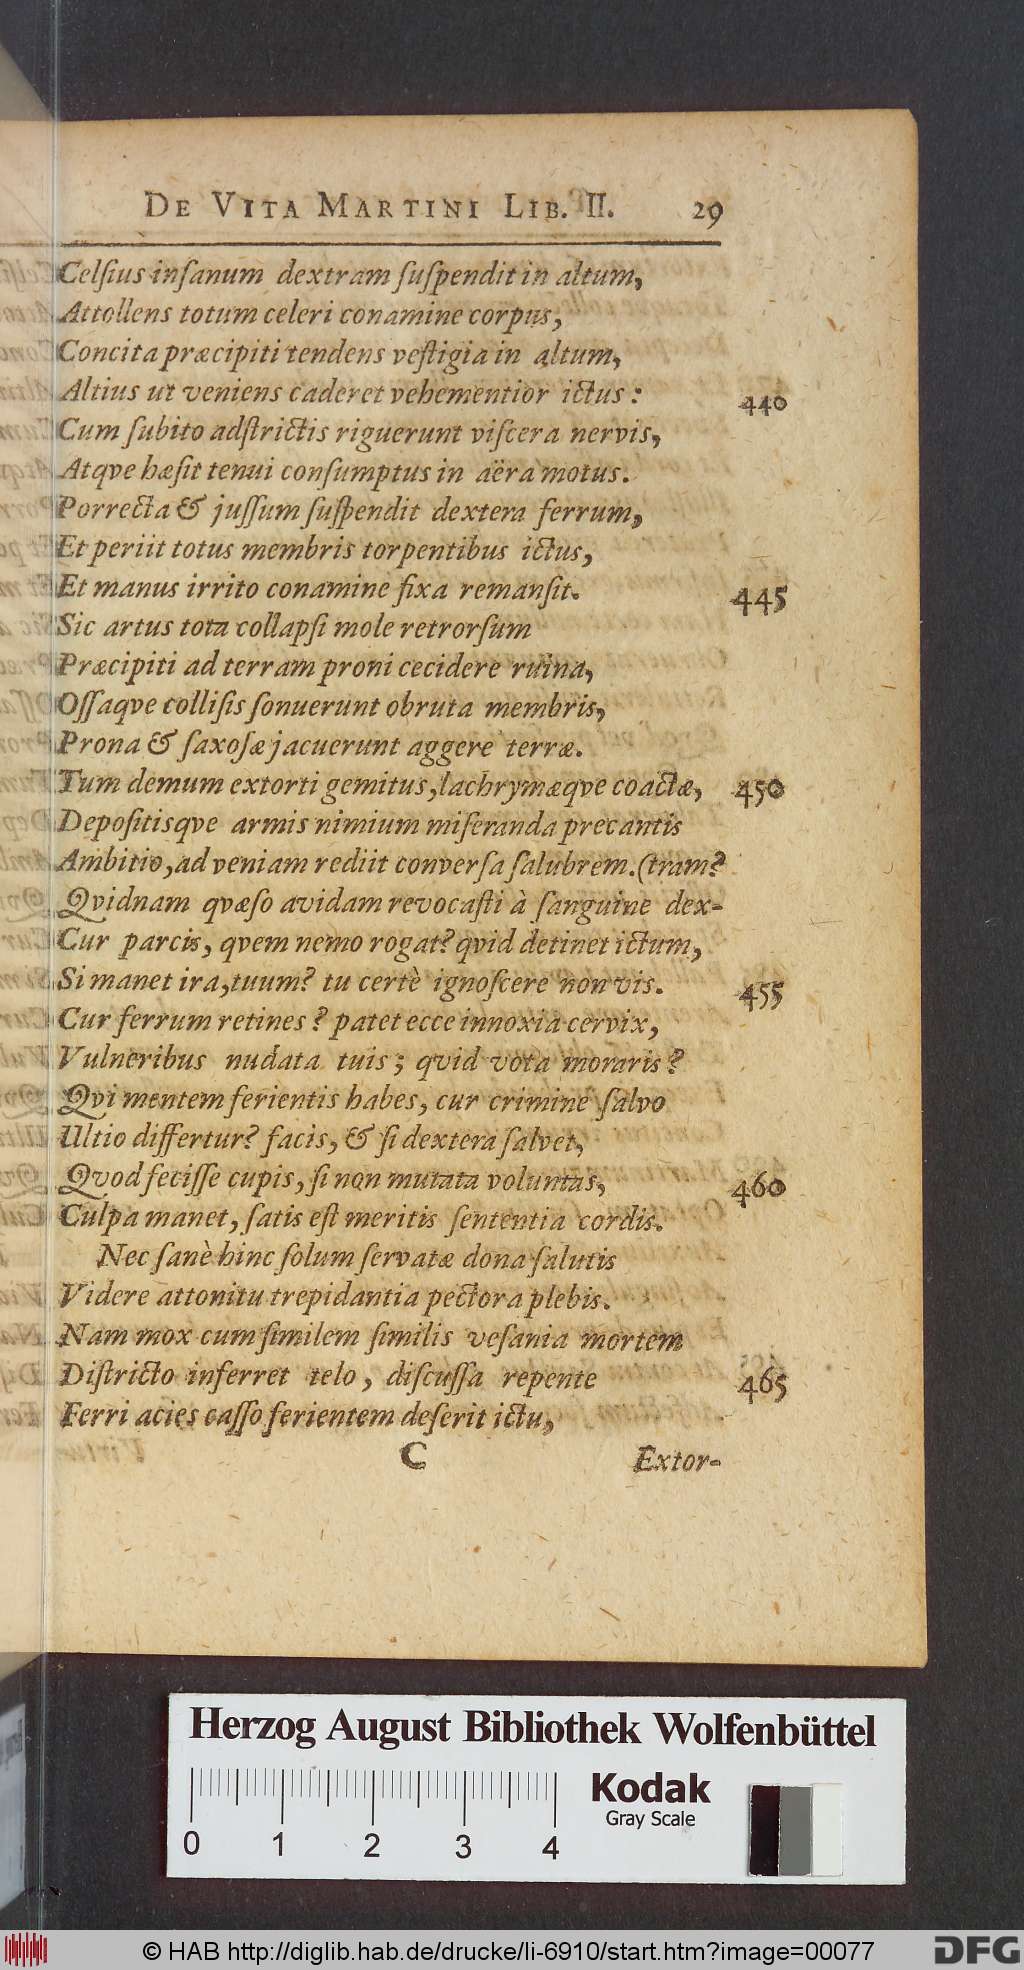 DE VITA MARTINI LIB. II. 29
Celſius inſanum dextram ſuſpendit in altum,
Attollens totum celeri conamine corpus,
Concita præcipiti tendens veſtigia in altum,
Altius ut veniens caderet vehementior ictus: 440
Cum ſubito adſtrictis riguerunt viſcera nervis,
Atqve hæſit tenui conſumptus in aëra motus.
Porrecta & juſſum ſuſpendit dextera ferrum,
Et periit totus membris torpentibus ictus,
Et manus irrito conamine fixa remanſit. 445
Sic artus tota collapſi mole retrorſum
Præcipiti ad terram proni cecidere ruina,
Oſſaqve colliſis ſonuerunt obruta membris,
Prona & ſaxoſæ jacuerunt aggere terræ.
Tum demum extorti gemitus, lachrymæqve coactæ, 450
Depoſitisqve armis nimium miſeranda precantis
Ambitio, ad veniam rediit converſa ſalubrem. (tram?
Qvidnam qvæſo avidam revocaſti à ſanguine dex-
Cur parcis, qvem nemo rogat? qvid detinet ictum,
Si manet ira, tuum? tu certè ignoſcere non vis. 455
Cur ferrum retines? patet ecce innoxia cervix,
Vulneribus nudata tuis; qvid vota moraris?
Qvi mentem ferientis habes, cur crimine ſalvo
Ultio differtur? facis, & ſi dextera ſalvet,
Qvod feciſſe cupis, ſi non mutata voluntas, 460
Culpa manet, ſatis eſt meritis ſententia cordis.
Nec ſanè hinc ſolum ſervatæ dona ſalutis
Videre attonitu trepidantia pectora plebis.
Nam mox cum ſimilem ſimilis veſania mortem
Diſtricto inferret telo, diſcuſſa repente 465
Ferri acies caſſo ferientem deſerit ictu,
C Extor-
Herzog August Bibliothek Wolfenbüttel
Kodak
Gray Scale
0 1 2 3 4
© HAB http://diglib.hab.de/drucke/li-6910/start.htm?image=00077
DFG